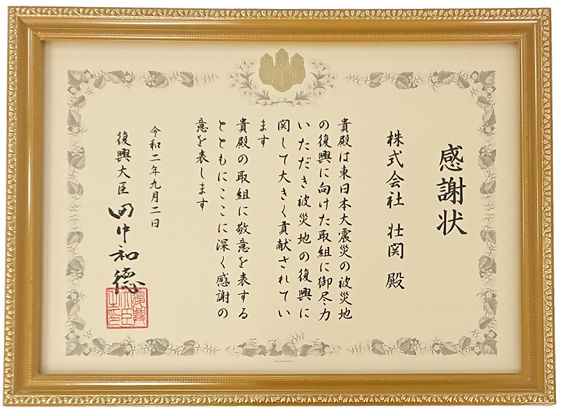 感謝状
株式会社 壮関 殿
貴殿は東日本大震災の被災地
の復興に向けた取組に御尽力
いただき被災地の復興に
関して大きく貢献されてい
ます
貴殿の取組に敬意を表する
とともにここに深く感謝の
意を表します
令和二年九月二日
復興大臣 田中和德